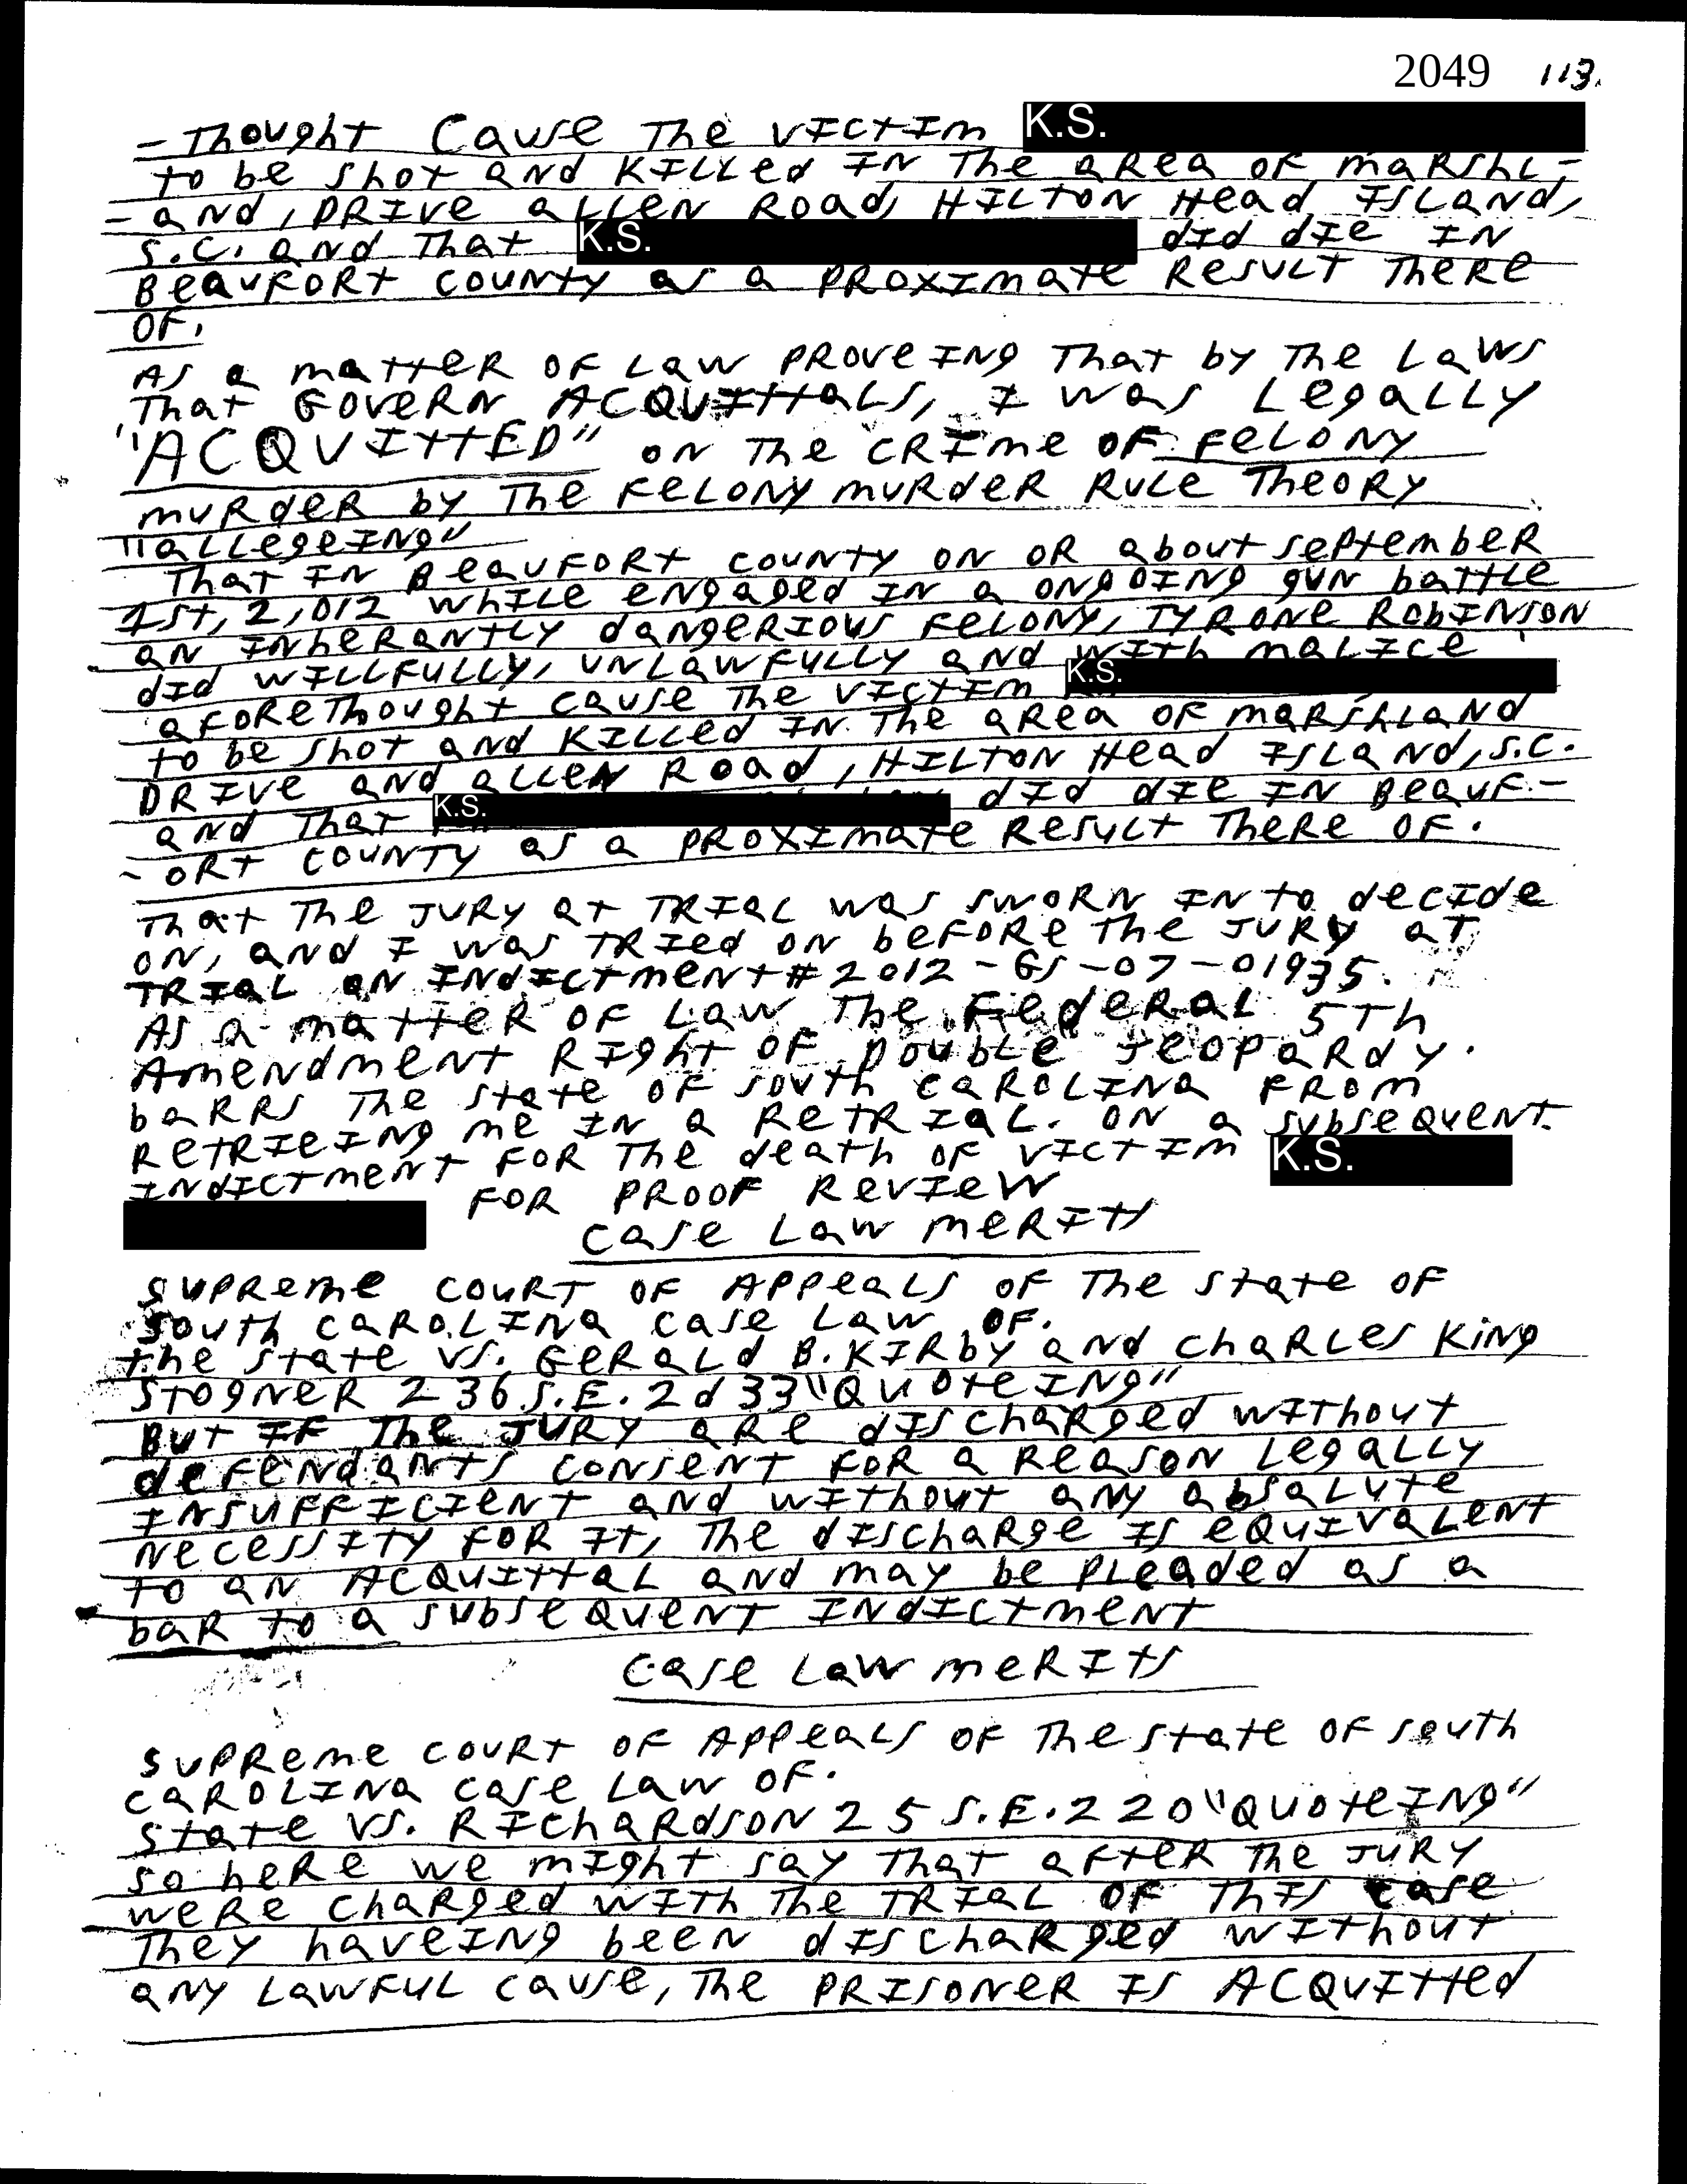 2049 113.
- Thought Cause The VICTIM K.S.
to be shot and KILLed IN The aRea OF maRShL-
- and, DRIve aLLeN Road, HILTON Head ISLand,
S.C. and That K.S. dId dIe IN
BeauFORt COUNTY as a PROXImate ResuLT TheRe
OF.
As a matteR OF Law PROveINg That by The Laws
That GoveRN ACQUIttaLs, I was LegaLLy
"ACQUITTED" ON The CRIme OF FeLONY
muRdeR by The FeLONy muRdeR RuLe TheORy
"aLLegeINg"
That IN BeauFORt COUNTY ON OR about SePtembeR
1st, 2,012 whILe eNgaged IN a ONgOINg guN battLe
aN INheRaNtLy daNgeRIous FeLONy, TyRONe RobINSON
dId wILLFuLLy, uNLawFuLLy aNd wIth maLIce
aFoReThought Cause The VICTIM K.S.
to be shot aNd KILLed IN The aRea OF maRShLaNd
DRIve aNd aLLeN Road, HILTON Head ISLaNd, S.C.
aNd That K.S. dId dIe IN BeauF-
- ORt COUNTY as a PROXImate ResuLt TheRe OF.
That The JuRy at TRIaL was swORN IN to decIde
ON, aNd I was TRIed ON beFORe The JuRy at
TRIaL ON INdIctmeNt # 2012-GS-07-01935.
As a matteR OF Law The FedeRaL 5Th
AmeNdmeNt RIght OF DoubLe JeopaRdy.
baRRs The state OF South CaROLINa FROm
RetRIeINg me IN a RetRIaL. ON a subsequeNt
INdIctmeNt FOR The death OF VIctIm K.S.
FOR PROOF RevIew
Case Law meRIts
SupReme CouRt OF AppeaLs OF The state OF
South CaROLINa Case Law OF.
the state vs. GeRaLd B. KIRby aNd ChaRLes KiNg
StOgNeR 236 S.E.2d 33 "QuoteINg"
But IF The JuRy aRe dIschaRged wIthout
deFeNdaNts coNseNt FoR a ReasoN LegaLLy
INsuFFIcIeNt aNd wIthout aNy absaLute
NecessIty FoR It, The dIschaRge Is equIvaLeNt
to aN ACquIttaL aNd may be PLeaded as a
baR to a subsequeNt INdIctmeNt
Case Law meRIts
SupReme couRt OF AppeaLs OF The state OF south
CaROLINa case Law OF.
State vs. RIchaRdsoN 25 S.E. 220 "QuoteINg"
so heRe we mIght say That aFteR The JuRy
weRe chaRged wIth The TRIaL OF ThIs case
They haveINg beeN dIschaRged wIthout
aNy LawFuL cause, The PRIsoNeR Is ACQuItted